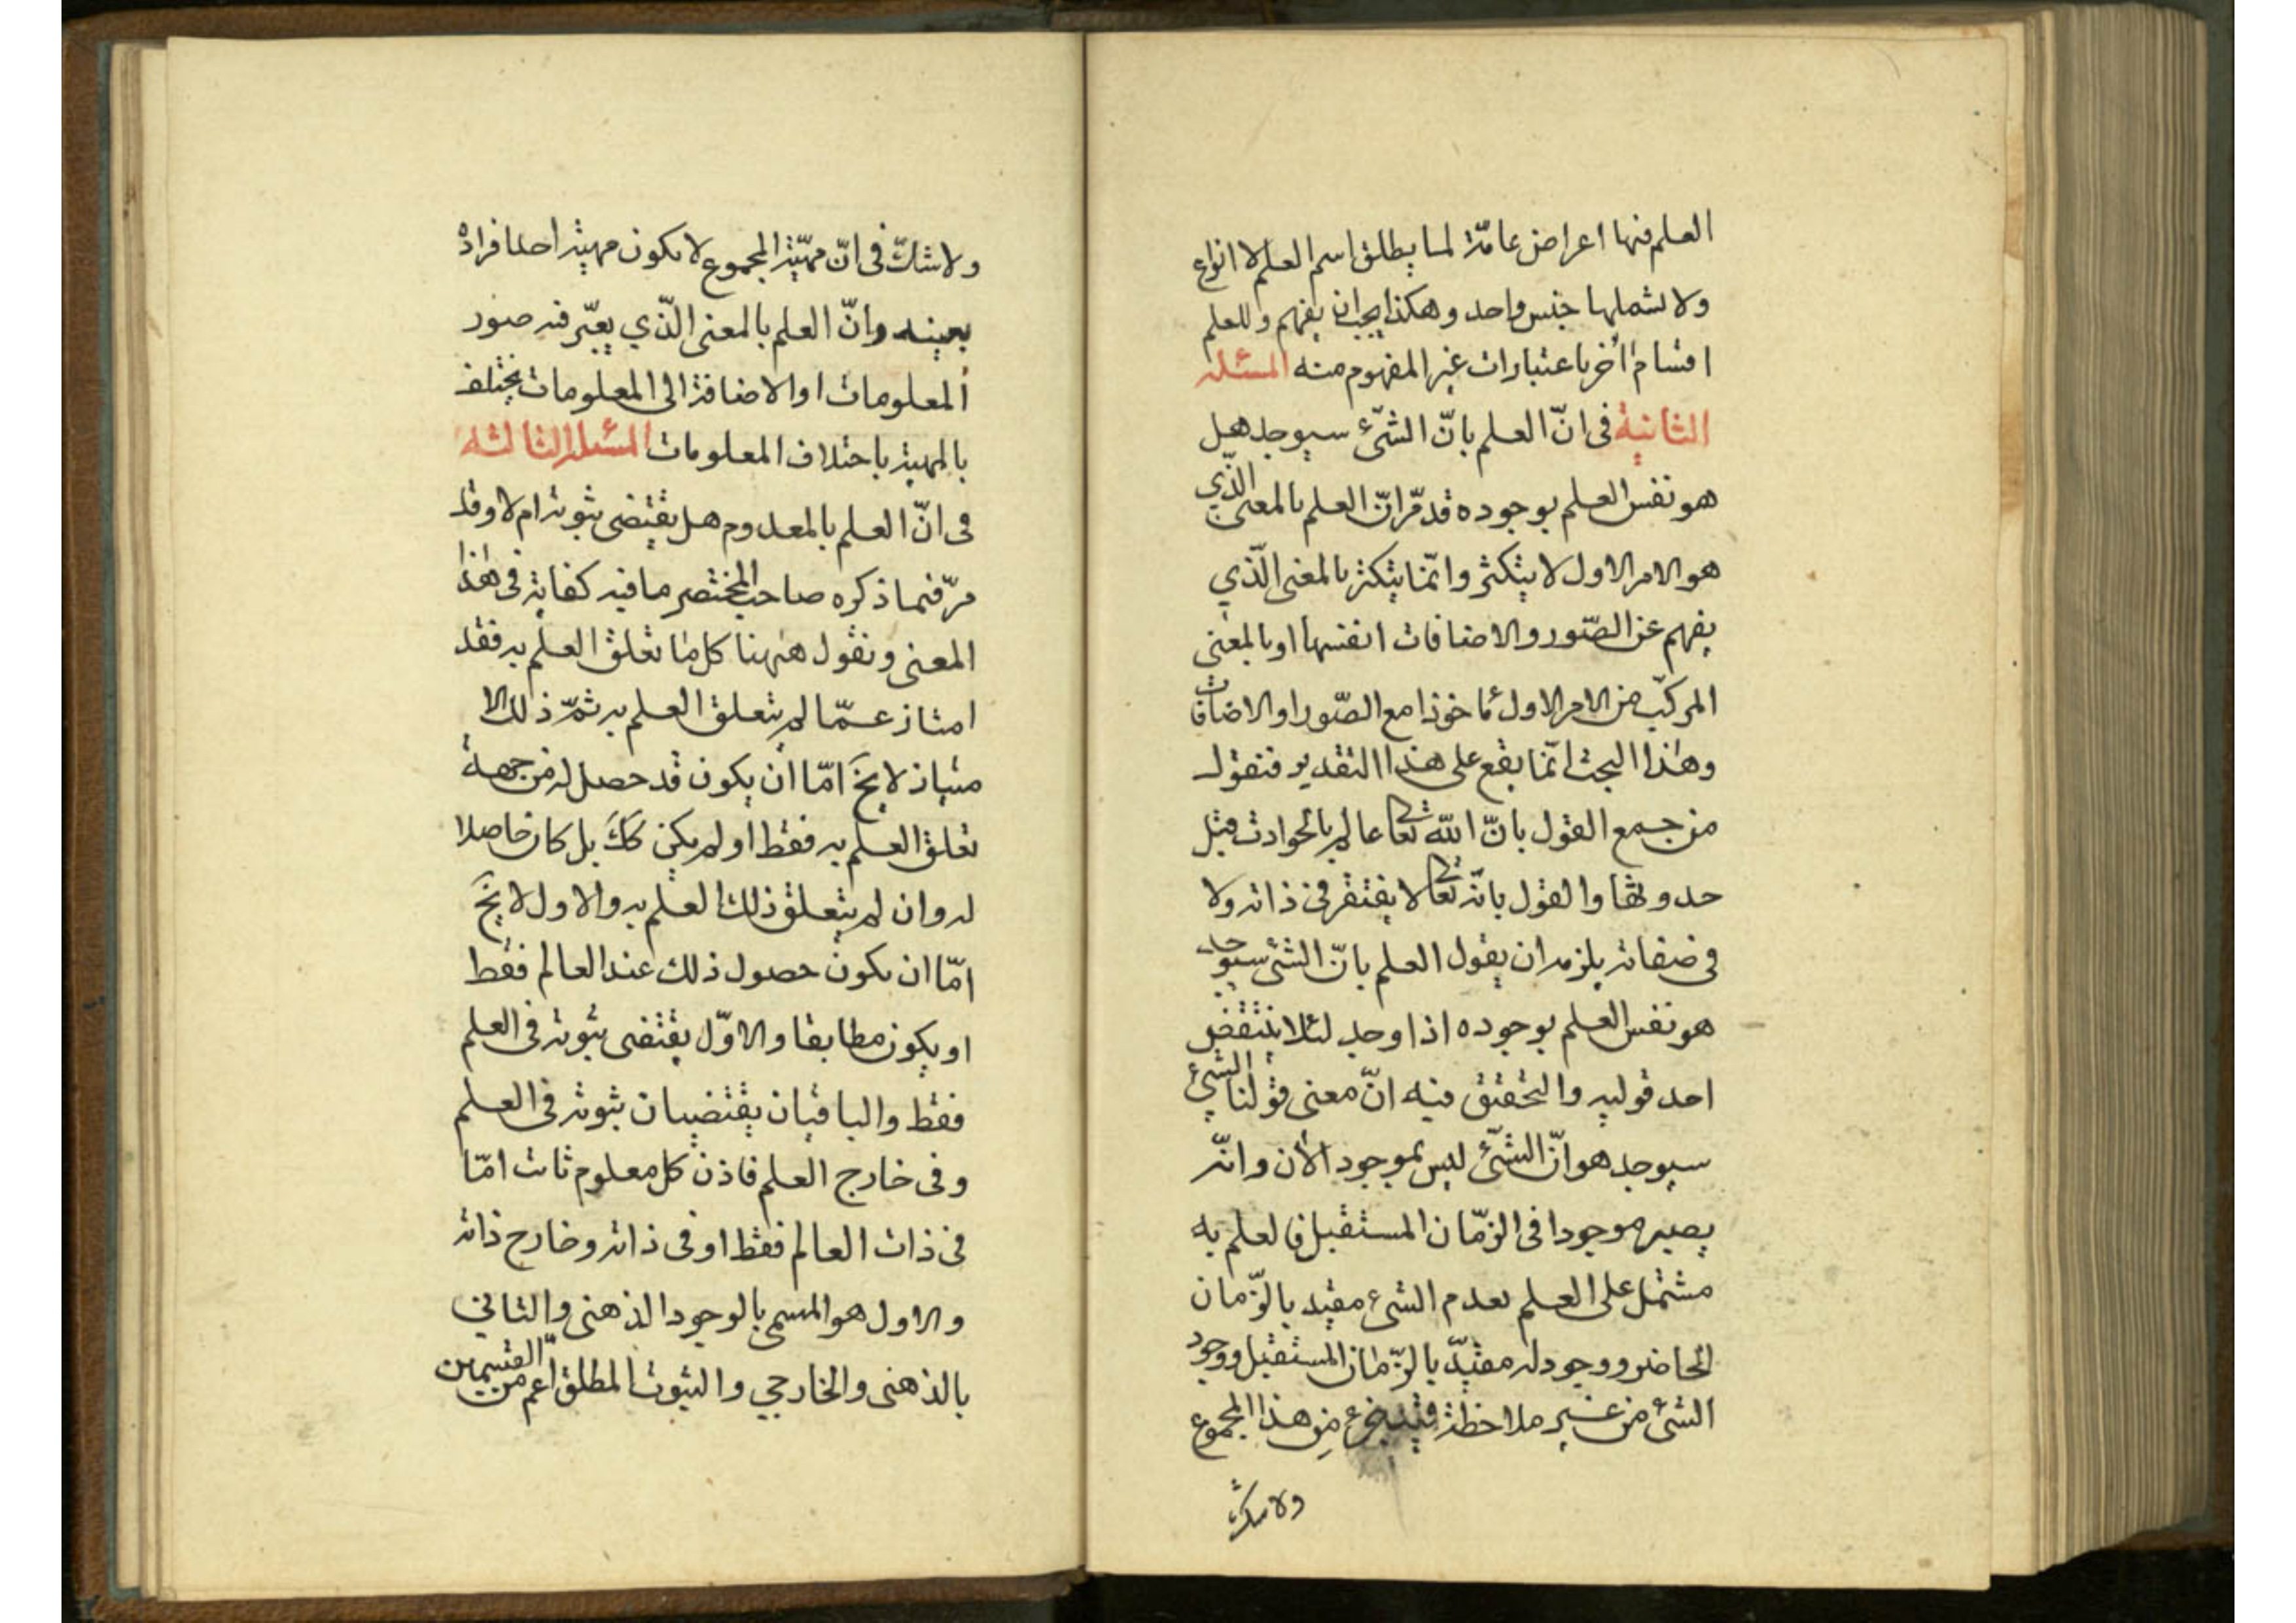 العلم فنها اعراض عامّة لما يطلق اسم العلم لا انواع
ولا تشملها جنس واحد وهكذا يجب ان يفهم وللعلم
اقسام أخر باعتبارات غير المفهوم منه المسئلة
الثانية فى انّ العلم بانّ الشّئ سيوجد هل
هو نفس العلم بوجوده قد مرّ انّ العلم بالمعنى الّذي
هو الامر الاول لا يتكثر وانّما يتكثر بالمعنى الّذي
يفهم عن الصّور والاضافات انفسها او بالمعنى
المركّب من الامر الاول مأخوذا مع الصّور او الاضافات
وهذا البحث انّما يقع على هذا التقدير فنقول
من جمع القول بانّ اللّه تعالى عالم بالحوادث قبل
حدوثها والقول بانّه تعالى لا يفتقر فى ذاته ولا
فى صفاته يلزمه ان يقول العلم بانّ الشئ سيوجد
هو نفس العلم بوجوده اذا وجد لئلا ينتقض
احد قوليه والتحقيق فيه انّ معنى قولنا الشئ
سيوجد هو انّ الشّئ ليس بموجود الأن وانّه
يصير موجودا فى الزّمان المستقبل فالعلم به
مشتمل على العلم بعدم الشئ مقيد بالزّمان
الحاضر ووجود له مقيّد بالزّمان المستقبل ووجود
الشئ من غير ملاحظة من هذا المجموع
ولا شك
ولا شكّ فى انّ مهيّة المجموع لا يكون مهية احد افراده
بعينه وانّ العلم بالمعنى الّذي يعبّر فيه صور
المعلومات او الاضافة الى المعلومات يختلف
بالمهية باختلاف المعلومات المسئلة الثالثه
فى انّ العلم بالمعدوم هل يقتضى ثبوته ام لا وقد
مرّ فيما ذكره صاحب المختصر ما فيه كفاية فى هذا
المعنى ونقول هيهنا كل ما تعلق العلم به فقد
امتاز عمّا لم يتعلق العلم به ثمّ ذلك الا
متياز لا يخ امّا ان يكون قد حصل له من جهة
تعلق العلم به فقط او لم يكن كك بل كان حاصلا
له وان لم يتعلق ذلك العلم به والاول لا يخ
امّا ان يكون حصول ذلك عند العالم فقط
او يكون مطابقا والاوّل يقتضى ثبوته فى العلم
فقط والباقيان يقتضيان ثبوته فى العلم
وفى خارج العلم فاذن كل معلوم ثابت امّا
فى ذات العالم فقط او فى ذاته وخارج ذاته
والاول هو المسمى بالوجود الذهنى والثانى
بالذهنى والخارجي والثبوت المطلق اعم من القسمين